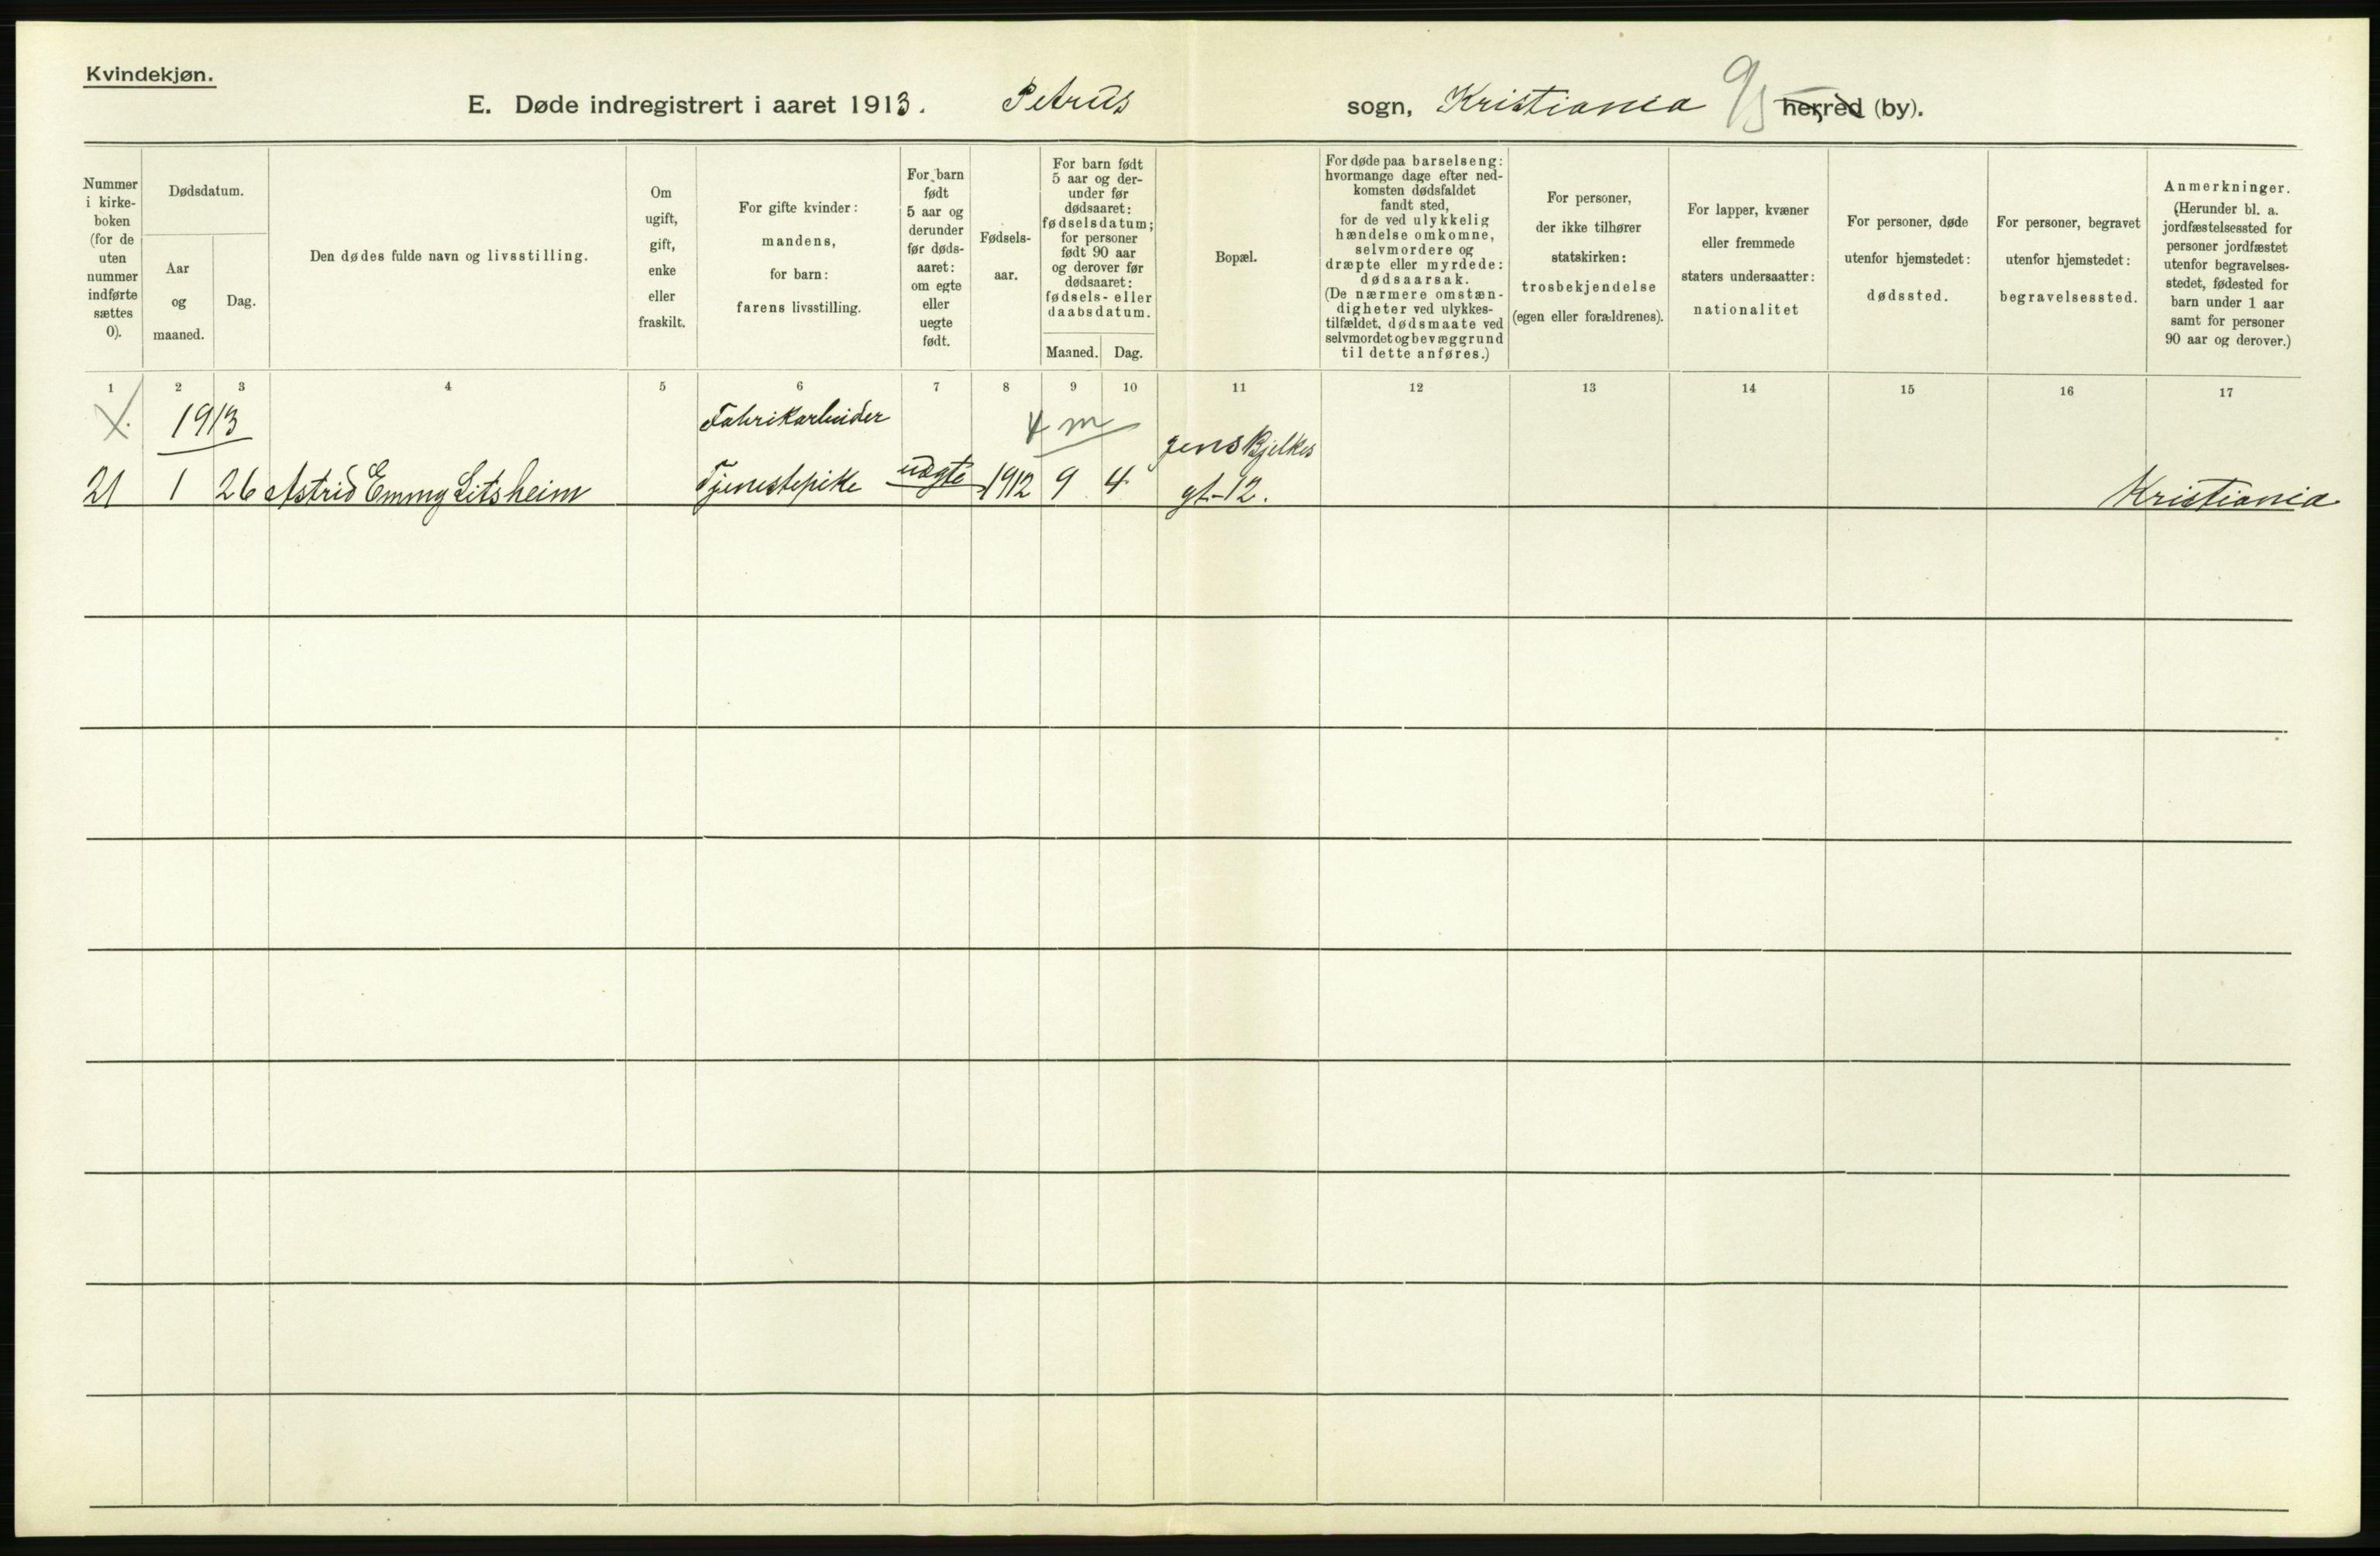 Kvindekjøn.
E. Døde indregistrert i aaret 1913. Petrus sogn, Kristiania herred (by).
Nummer
i kirke-
boken
(for de
uten
nummer
indførte
sættes
0).
Dødsdatum.
Aar
og
maaned.
Dag.
Den dødes fulde navn og livsstilling.
Om
ugift,
gift,
enke
eller
fraskilt.
For gifte kvinder:
mandens,
for barn:
farens livsstilling.
For barn
født
5 aar og
derunder
før døds-
aaret:
om egte
eller
uegte
født.
Fødsels-
aar.
For barn født
5 aar og der-
under før
dødsaaret:
fødselsdatum;
for personer
født 90 aar
og derover før
dødsaaret:
fødsels- eller
daabsdatum.
Maaned. Dag.
Bopæl.
For døde paa barselseng:
hvormange dage efter ned-
komsten dødsfaldet
fandt sted,
for de ved ulykkelig
hændelse omkomne,
selvmordere og
dræpte eller myrdede:
dødsaarsak.
(De nærmere omstæn-
digheter ved ulykkes-
tilfældet, dødsmaate ved
selvmordet og bevæggrund
til dette anføres.)
For personer,
der ikke tilhører
statskirken:
trosbekjendelse
(egen eller forældrenes).
For lapper, kvæner
eller fremmede
staters undersaatter:
nationalitet
For personer, døde
utenfor hjemstedet:
dødssted.
For personer, begravet
utenfor hjemstedet:
begravelsessted.
Anmerkninger.
(Herunder bl. a.
jordfæstelsessted for
personer jordfæstet
utenfor begravelses-
stedet, fødested for
barn under 1 aar
samt for personer
90 aar og derover.)
1 2 3 4 5 6 7 8 9 10 11 12 13 14 15 16 17
1913 Fabrikarbeider 4 m Jens Bjelkes
21 1 26 Astrid Emmy Litsheim Tjenestepike uægte 1912 9 4 gt. 12. Kristiania